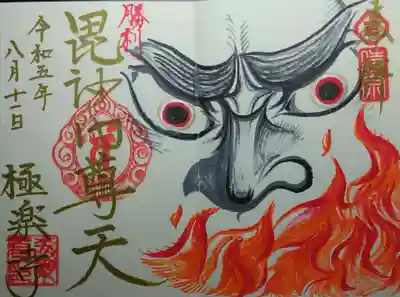 勝利
毘沙門尊天
令和五年
八月十一日
極楽寺